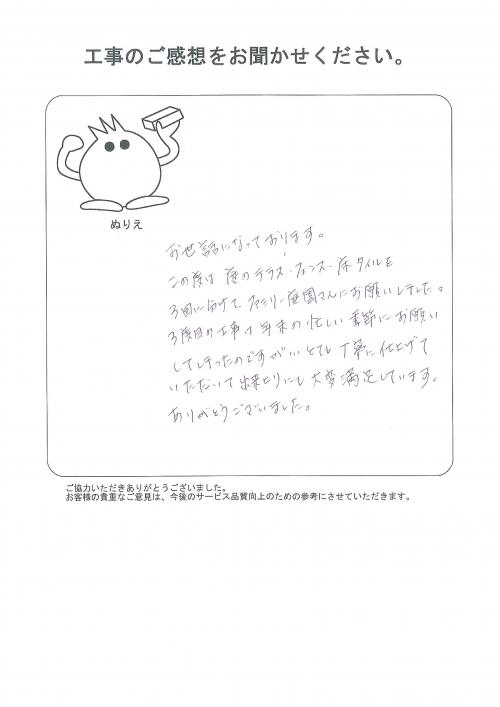 工事のご感想をお聞かせください。
ぬりえ
お世話になっております。
この度は 庭のテラス・フェンス・床タイルを
3回に分けて ファミリー庭園さんにお願いしました。
3度目の工事は 年末の忙しい季節にお願い
してしまったのですが とても 丁寧に仕上げて
いただいて 出来上りにも 大変満足しています。
ありがとうございました。
ご協力いただきありがとうございました。
お客様の貴重なご意見は、今後のサービス品質向上のための参考にさせていただきます。